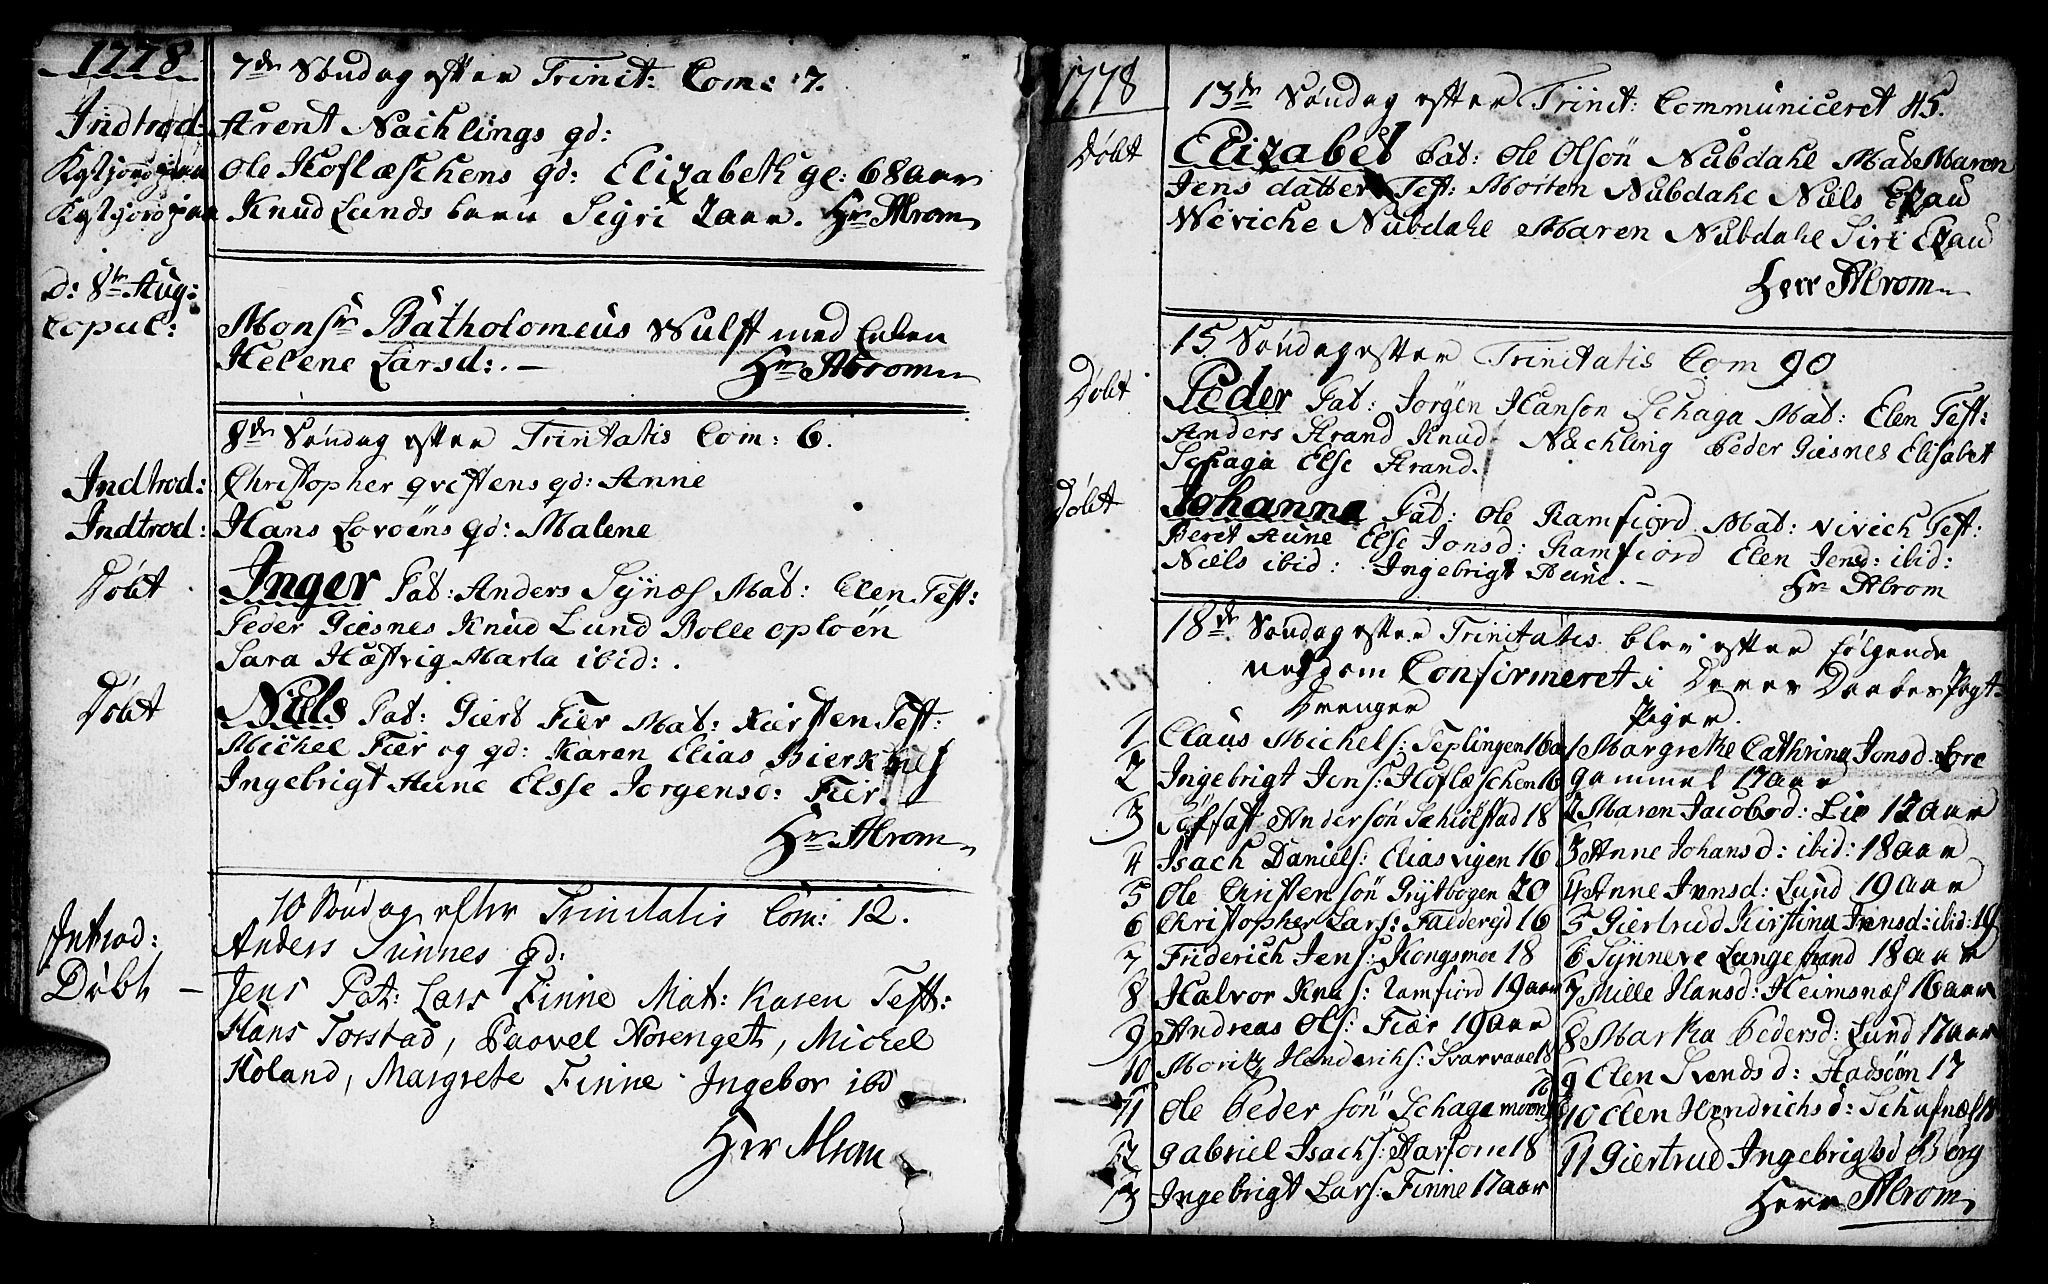 1778
7de Søndag efter Trinit: Com: 7.
Indtrod: Arent Nachlings qd:
Ole Hoflæschens qd: Elizabeth gl: 68 aar
Knud Lunds barn Sigri 2 aar. Hr. Abrom
d: 8tn Aug:
Copul: Monsr Batholomeus Wulff med Enken
Helene Larsd: . — Hr Abrom
8de Søndag efter Trinitatis Com: 6.
Indtrod: Christopher qvistens qd: Anne
Indtrod: Hans Lovöens qd: Malene
Døbt Inger Pat: Anders Synæs Mat: Elen Test:
Peder Giesnes Knud Lund Bolle oploën
Sara Hæstvig Marta ibid: .
Døbt Niels Pat: Giert Fier Mat: Kiersten Test:
Michel Fier og qd: Karen Elias
Ingebrigt Aune Elsse Jorgensd: Fier.
Hr Abrom
10 Søndag efter Trinitatis Com: 12.
Introd: Anders Sunnes qd:
Døbt — Jens Pat: Lars Finne Mat: Karen Test:
Hans Torstad, Paavel Rosenget, Michel
Høland, Margrete Finne Ingebor ibd
Her Abrom
1778
13de Søndag efter Trinit: Communiceret 45.
Døbt Elizabet Pat: Ole Olsön Nubdahl Mat: Maren
Jens datter Test: Morten Nubdahl Niels Ezau
Weviche Nubdahl Maren Nubdahl Siri Ezau
Herr Abrom
15 Søndag efter Trinitatis Com 90
Døbt Peder Pat: Jörgen Hanson Schaga Mat: Elen Test:
Anders Strand Knud Nachling Peder Giesnes Elisabet
Schaga Else Strand.
Døbt Johanna Pat: Ole Ramfiord Mat: vivich Test:
Beret Aune Else Jonsd: Ramfiord Elen Jensd: ibid:
Niels ibid: Ingebrigt Aune. — Hr Abrom
18de Søndag efter Trinitatis blev efter følgende
ungdom Confirmeret i Deres Daabes Pagt
Drenger
1 Claus Michels: Teplingen 16 a
2 Ingebrigt Jens: Hoflæschen 16
3 Andersön Schiölstad 18
4 Isach Daniels: Eliasvigen 16
5 Ole Christensön Grytbogen 20
6 Christopher Lars: 16
7 Friderich Jens: Kongsmoe 18
8 Halvor Knus: Ramfiord 19 aar
9 Andreas Ols: Fiær 19 aar
10 Moritz Henderichs: Svarvaae 18
11 Ole Pedersön Schagamoen
12 gabriel Isachs: Aarsom 18
13 Ingebrigt Lars: Finne 17 aar
Piger.
1 Margrethe Cathrina Jonsd: Fore
gammel 17 aar
2 Maren Jacobsd: Lie 17 aar
3 Anne Johansd: ibid: 18 aar
4 Anne Jensd: Lund 19 aar
5 Giertrud Kirstina Jensd: ibid: 19
6 Synneve Langestrand 18 aar
7 Mille Hansd: Heimsnæs 16 aar
8 Marta Pedersd: Lund 17 aar
9 Elen Svendsd: Aadsöm 17
10 Elen Hendrichsd: Schafnæs
11 Giertrud Ingebrigtsd Berg
Herr Abrom